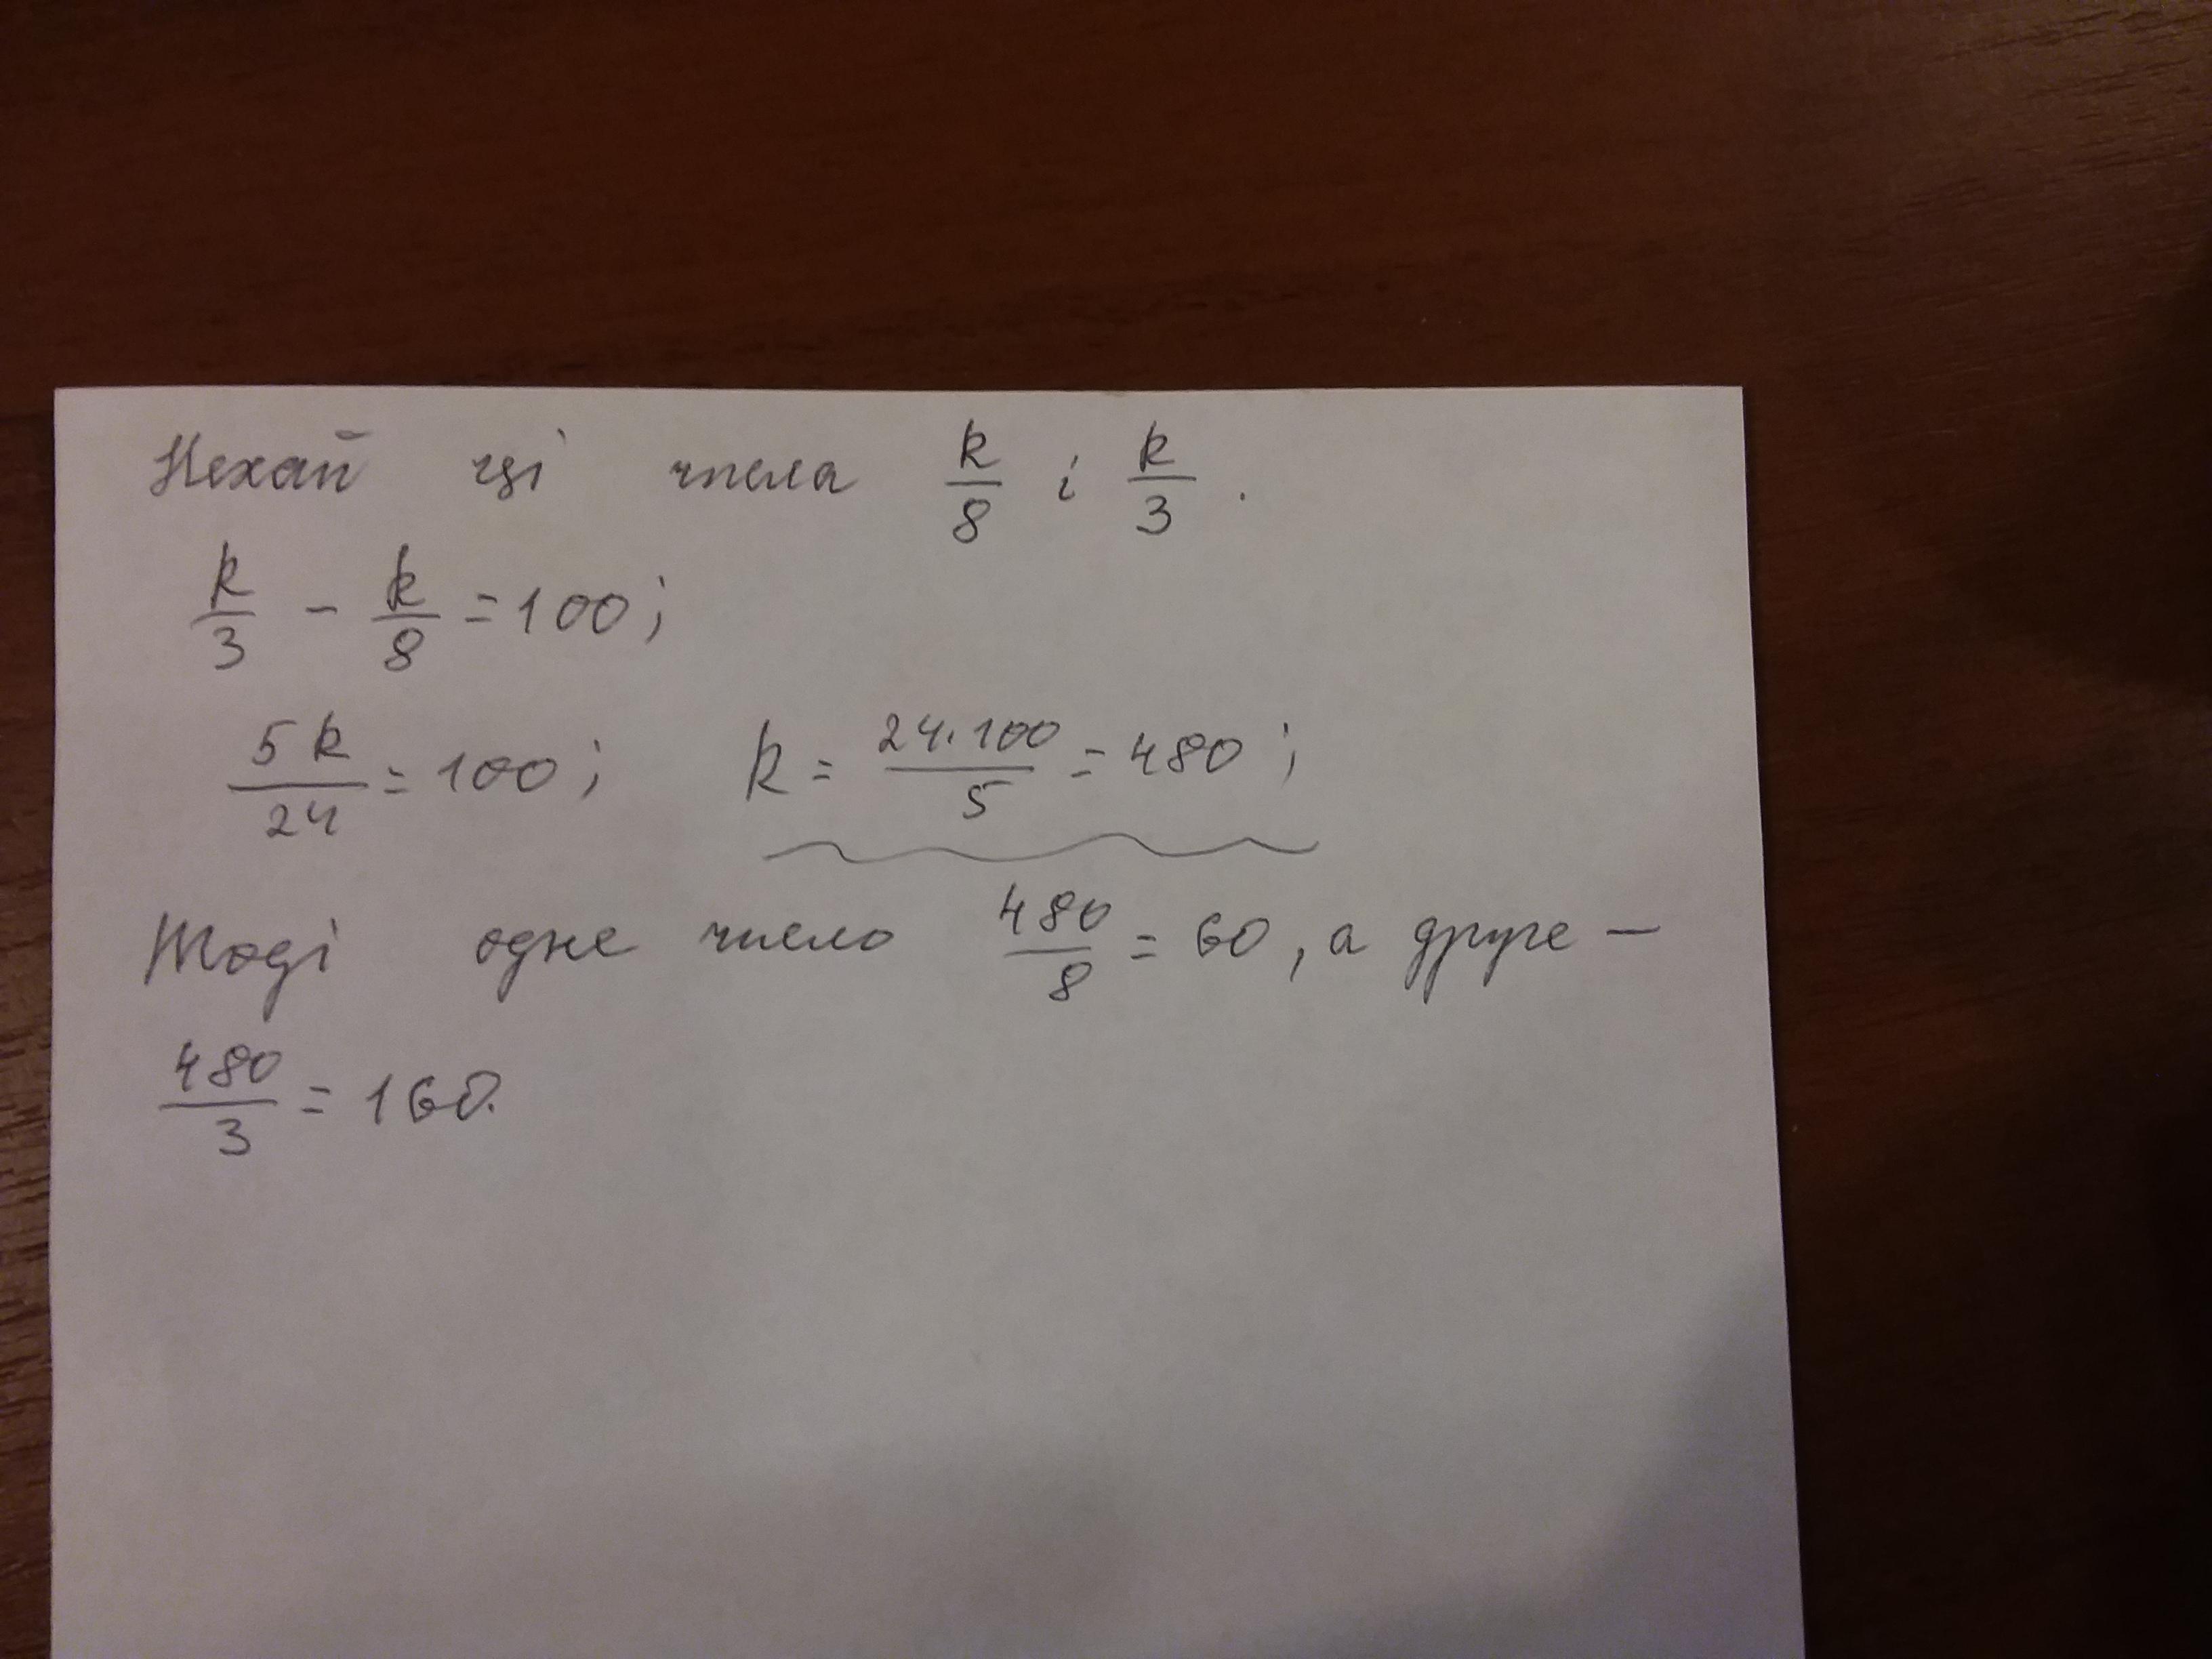 Нехай ці числа k/8 і k/3.
k/3 - k/8 = 100;
5k/24 = 100; k = 24·100/5 = 480;
Тоді одне число 480/8 = 60, а друге –
480/3 = 160.